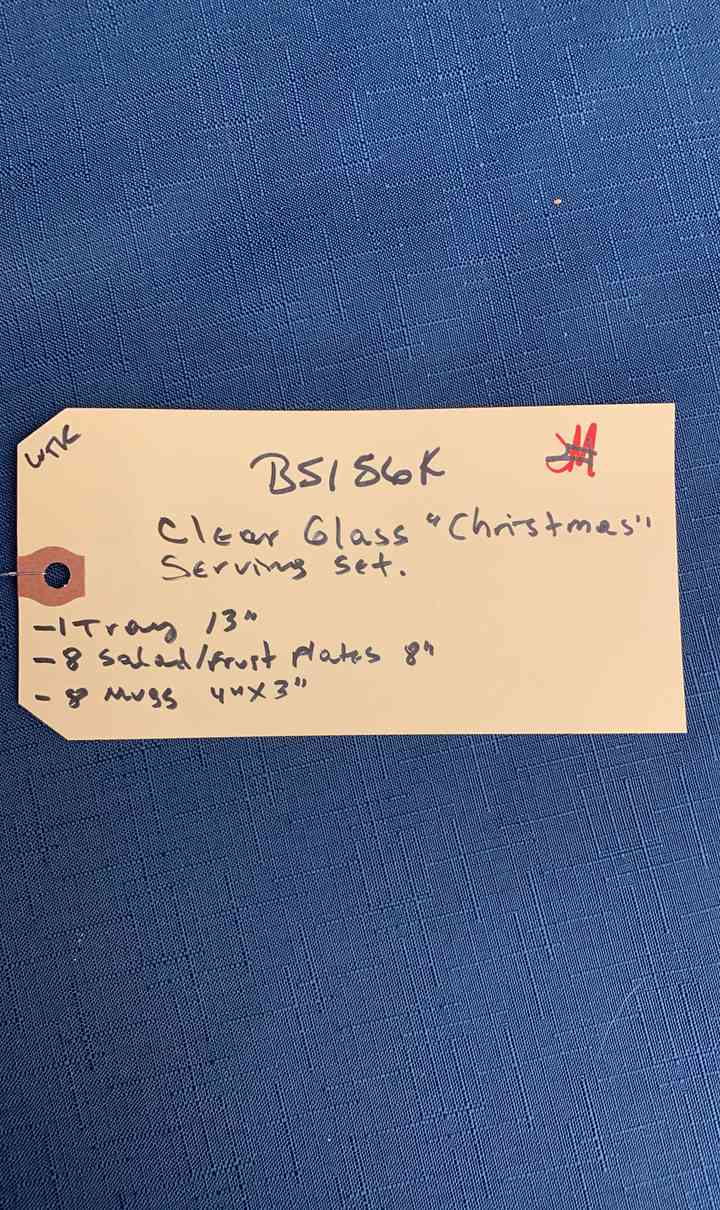 WTK
B5156K
Clear Glass "Christmas"
Serving Set.
-1 Tray 13"
-8 Salad/Fruit Plates 8"
-8 Mugs 4"X3"